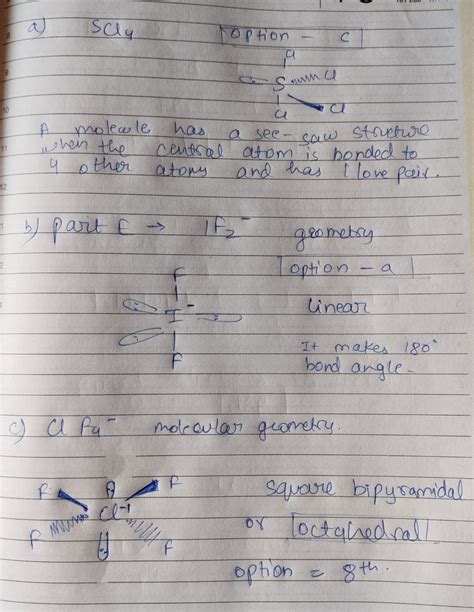 a) SCl4 option - C
Cl
S Cl
Cl
Cl
A molecule has a see-saw structure
when the central atom is bonded to
4 other atoms and has 1 lone pair.
b) part E → IF2⁻ geometry
option - a
F
I⁻ linear
F
It makes 180°
bond angle.
c) ClF4⁻ molecular geometry.
F F
Cl⁻¹
F F
square bipyramidal
or octahedral
option = 8th.